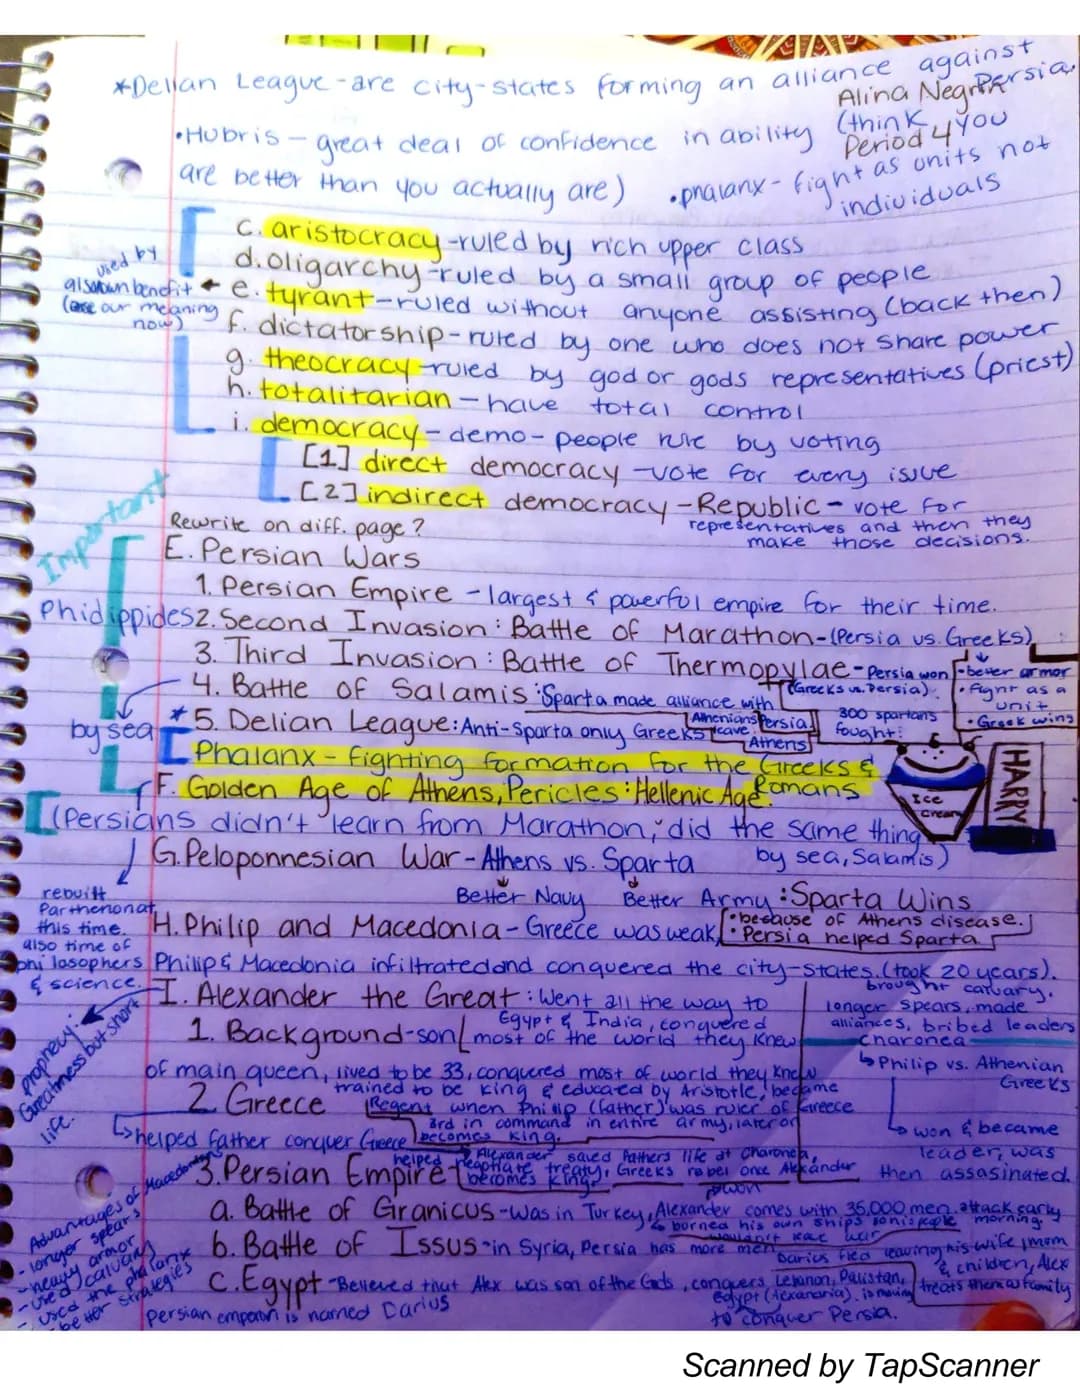 *Delian League - are city-states forming an alliance against Persia.
Alina Negr
Period 4
•Hubris - great deal of confidence in ability (think you
are better than you actually are)
•phalanx - fight as units not
individuals
c. aristocracy - ruled by rich upper class
d. oligarchy - ruled by a small group of people
used by
own benefit
our meaning
now)
e. tyrant - ruled without anyone assisting (back then)
f. dictatorship - ruled by one who does not share power
g. theocracy - ruled by god or gods representatives (priest)
h. totalitarian - have total control
i. democracy - demo - people rule by voting
[1] direct democracy - vote for every issue
[2] indirect democracy - Republic - vote for
representatives and then they
make those decisions.
Important
Rewrite on diff. page?
E. Persian Wars
1. Persian Empire - largest & powerful empire for their time.
Phidippides
2. Second Invasion: Battle of Marathon - (Persia vs. Greeks)
• better armor
• fight as a
unit
• Greek wins
3. Third Invasion: Battle of Thermopylae - Persia won
(Greeks vs. Persia)
300 spartans
fought!
4. Battle of Salamis: Sparta made alliance with
Athenians
by sea
*5. Delian League: Anti-Sparta only Greeks
Persia
leave
Athens
Phalanx - fighting formation for the Greeks &
Romans
F. Golden Age of Athens, Pericles: Hellenic Age
Ice
Cream
HARRY
(Persians didn't learn from Marathon, did the same thing
by sea, Salamis)
G. Peloponnesian War - Athens vs. Sparta
Better Navy Better Army: Sparta Wins
• because of Athens disease.
• Persia helped Sparta
rebuilt
Parthenon at
this time.
also time of
philosophers
& science.
H. Philip and Macedonia - Greece was weak,
Philip & Macedonia infiltrated and conquered the city-states. (took 20 years).
brought calvary,
longer spears, made
alliances, bribed leaders
charonea
Philip vs. Athenian
Greeks
won & became
leader, was
then assasinated.
prophecy:
Greatness but short
life.
I. Alexander the Great: Went all the way to
Egypt & India, conquered
most of the world they knew
1. Background - son
of main queen, lived to be 33, conquered most of world they knew
trained to be king & educated by Aristotle, became
Regent when Philip (father) was ruler of Greece
3rd in command in entire army, later on
becomes king.
2. Greece
helped father conquer Greece
Alexander saved fathers life at Charonea,
helped negotiate treaty, Greeks rebel once Alexander
becomes king.
won
3. Persian Empire
a. Battle of Granicus - was in Turkey, Alexander comes with 35,000 men. attack early
morning.
burned his own ships so his people
wouldn't
b. Battle of Issus - in Syria, Persia has more men
Darius fled leaving his wife, mom
& children, Alex
treats them as family
c. Egypt - Believed that Alex was son of the Gods, conquers Lebanon, Palistan,
Egypt (Alexandria). is moving
to conquer Persia.
Advantages of Macedonians
- longer spears
- heavy armor
- used calvary
- used the phalanx
- better strategies
Persian emperor is named Darius
Scanned by TapScanner